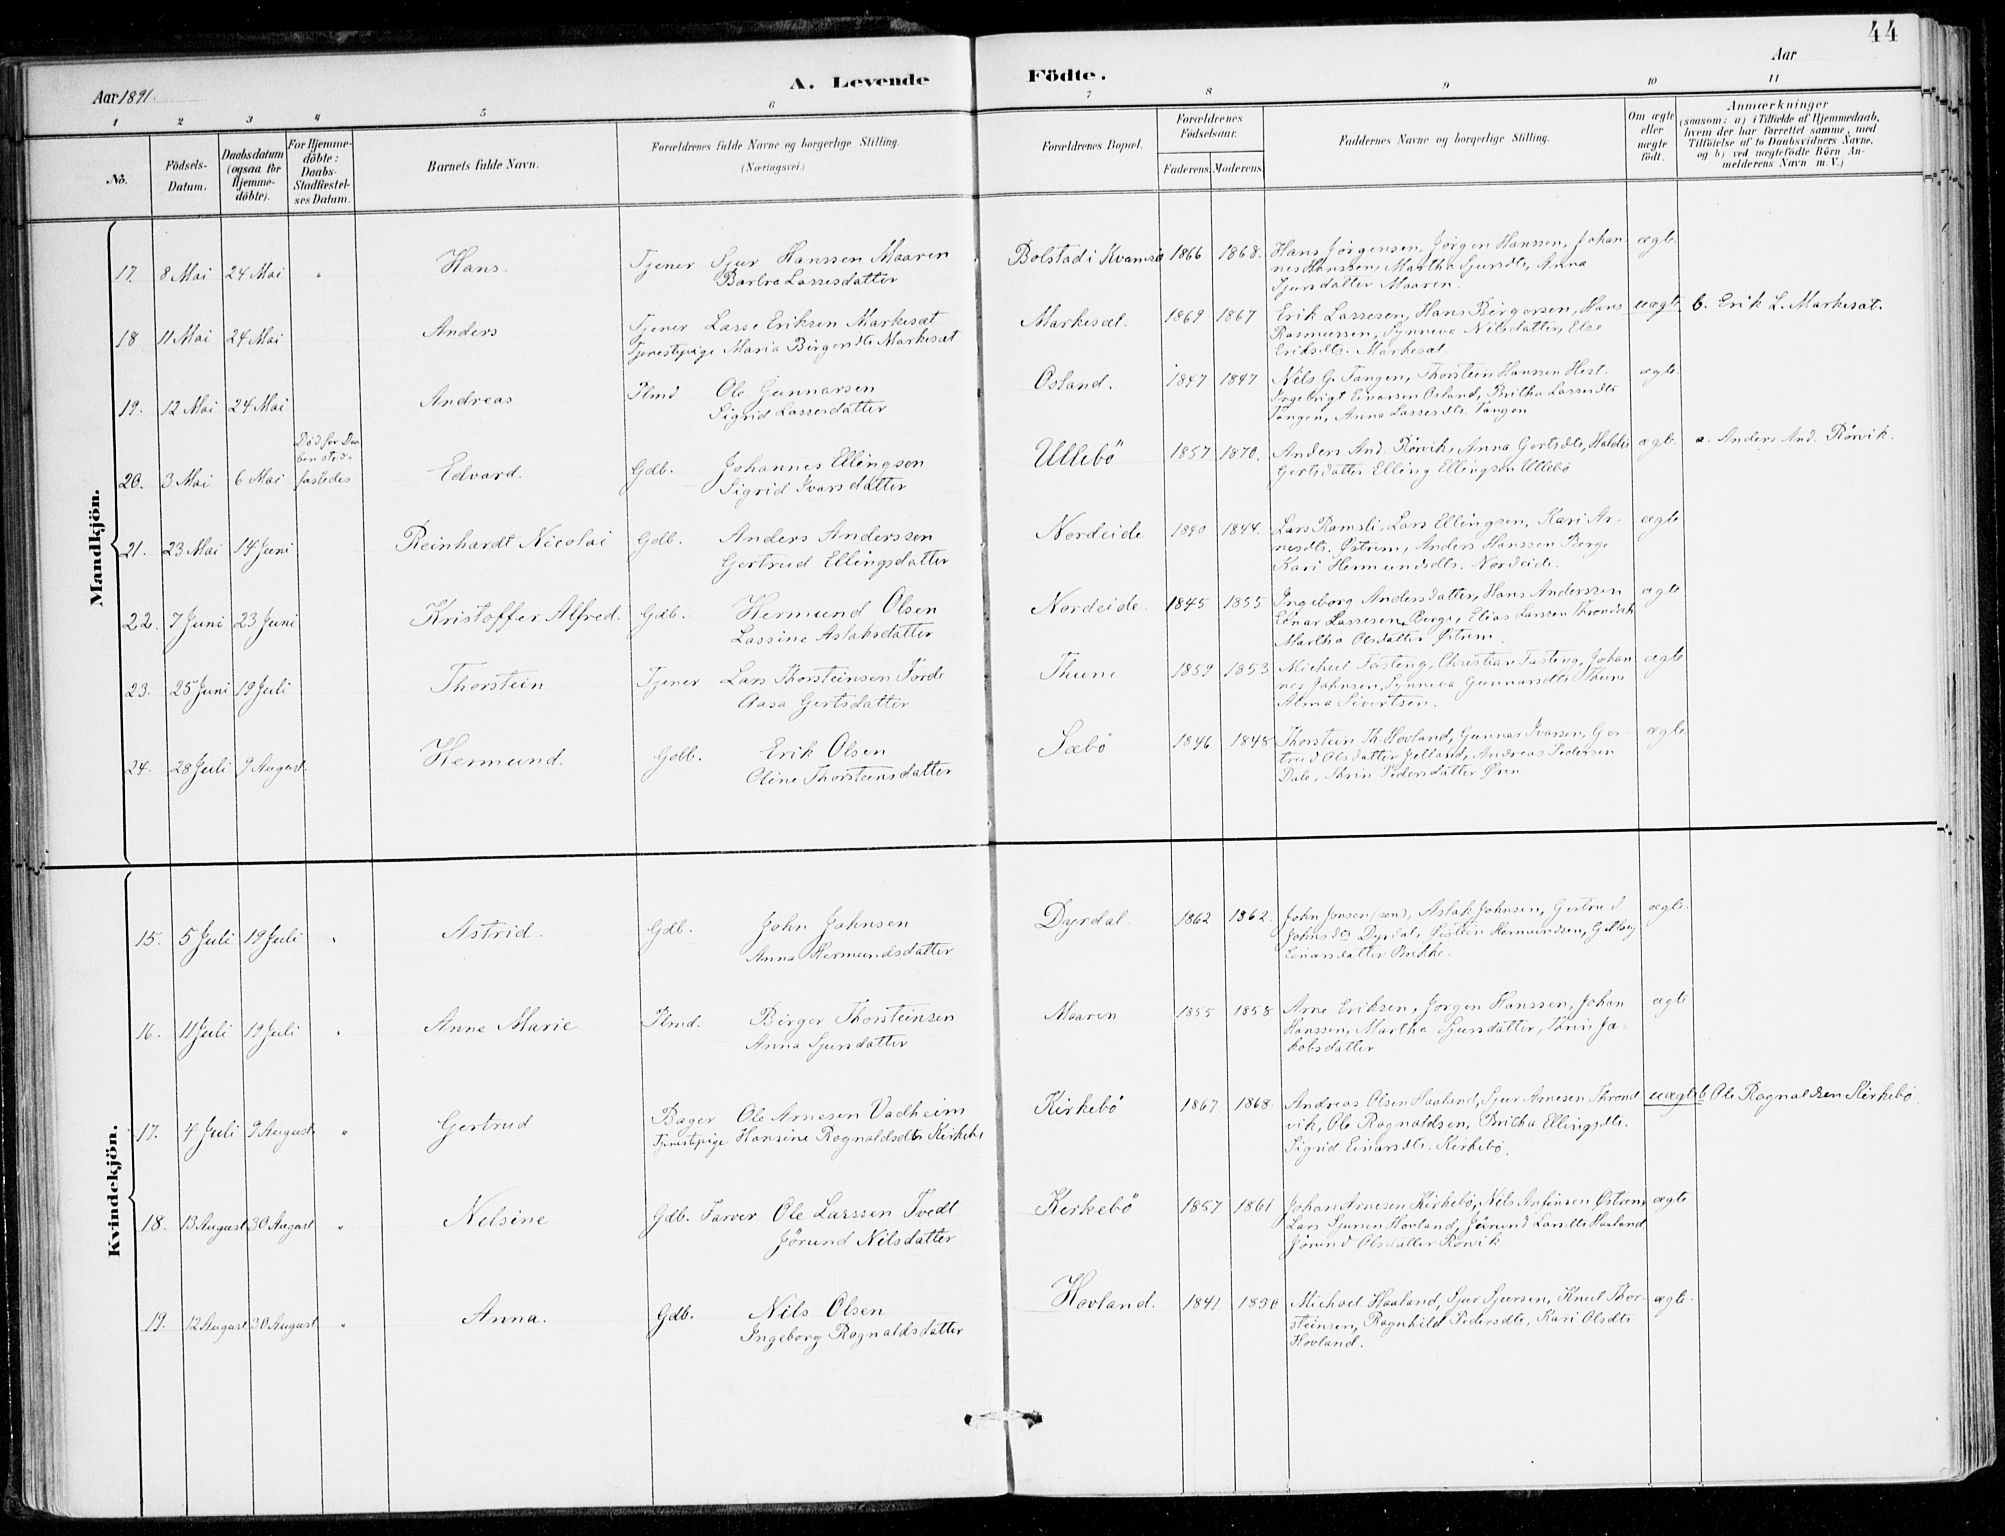 44
Aar 1891.
A. Levende Födte.
Aar
1 2 3 4 5 6 7 8 9 10 11
No.
Födsels-Datum.
Daabsdatum (ogsaa for Hjemmedöbte).
For Hjemmedöbte: Daabs-Stadfestelses Datum.
Barnets fulde Navn.
Forældrenes fulde Navne og borgerlige Stilling. (Næringsvei.)
Forældrenes Bopæl.
Forældrenes Födselsaar.
Faderens. Moderens.
Faddernes Navne og borgerlige Stilling.
Om ægte eller uægte födt.
Anmærkninger
(saasom: a) i Tilfælde af Hjemmedaab,
hvem der har forrettet samme, med
Tilföielse af to Daabsvidners Navne,
og b) ved uægtefödte Börn Anmelderens Navn m. V.)
Mandkjön.
17. 8 Mai 24 Mai " Hans. Tjener Sjur Hanssen Maaren
Barbra Lassesdatter
Bolstad i Kvamsø 1866 1868. Hans Jørgensen, Jørgen Hanssen, Johan- ægte.
nes Hanssen, Martha Sjursdtr, Anna
Sjursdatter Maaren.
18 11 Mai 24 Mai Anders Tjener Lasse Eriksen Markesæt
Tjenestepige Maria Birgersdtr Markesæt
Markesæt. 1869 1867 Erik Lassesen, Hans Birgersen, Hans uægte. b. Erik L. Markesæt.
Rasmussen, Synneva Nilsdatter, Else
Eriksdtr. Markesæt.
19. 12 Mai 24 Mai Andreas Plmd Ole Gunnarsen
Sigrid Lassesdatter
Osland. 1847 1847 Nils G. Tangen, Thorstein Hanssen Hest. ægte
Ingebrigt Einarsen Osland, Britha Lassesdtr
Tangen, Anna Lassesdtr. Tangen
20. 3 Mai 6 Mai Død før Daaben stadfæstedes Edvard. Gdb. Johannes Ellingsen
Sigrid Ivarsdatter
Ullebø 1857 1870. Anders And. Rørvik, Anna Gertsdtr, Haldis ægte. a. Anders And. Rørvik.
Gertsdatter Elling Ellingsen Ullebø
21. 23 Mai 14 Juni Reinhardt Nicolai Gdb. Anders Anderssen
Gertrud Ellingsdatter
Nordeide 1840 1844. Lars Ramsli, Lars Ellingsen, Kari Ar- ægte
nesdtr. Østrem, Anders Hanssen Berge
Kari Hermundsdtr. Nordeide.
22. 7 Juni 23 Juni Kristoffer Alfred. Gdb. Hermund Olsen
Lassine Aslaksdatter
Nordeide. 1845 1855 Ingeborg Andersdatter, Hans Anderssen ægte
Einar Lassesen, Berge, Elias Larssen
Martha Olsdatter Østrem
23. 25 Juni 19 Juli Thorstein Tjener Lars Thorsteinsen Førde
Aasa Gertsdatter
Thune 1859 1853 Michael Fasteng, Christian Fasteng, Johan ægte
nes Johnsen, Synneva Gunnarsdtr Thune
Alma Sivertsen.
24. 28 Juli 9 August. Hermund. Gdb. Erik Olsen
Oline Thorsteinsdatter
Sæbø 1846 1848 Thorstein Th. Hovland, Gunnar Ivarsen, Ger- ægte
trud Olsdatter Jelland, Andreas Pedersen
Dale, Thrin Pedersdatter Øren
Kvindekjön.
15. 5 Juli 19 Juli " Astrid. Gdb. John Johnsen
Anna Hermundsdatter
Dyrdal. 1862 1862. John Jonsen (sen), Aslak Johnsen, Gertrud ægte.
Johnsdtr Dyrdal, Østein Hermundsen, Guttorg
Einarsdatter Brekke.
16. 11 Juli 19 Juli " Anne Marie Plmd. Birger Thorsteinsen
Anna Sjursdatter
Maaren 1855 1858 Arne Eriksen, Jørgen Hanssen, Johan ægte
Hanssen, Martha Sjursdatter, Thrin Ja-
kobsdatter
17. 4 Juli 9 August. " Gertrud Bager Ole Arnesen Vadheim
Tjenestepige Hansine Ragnaldsdtr Kirkebø
Kirkebø 1867. 1868. Andreas Olsen Haaland, Sjur Arnesen Thrond uægte b Ole Ragnaldsen Kirkebø.
vik, Ole Ragnaldsen, Britha Ellingsdtr.
Sigrid Einarsdtr. Kirkebø.
18. 13 August 30 August " Nelsine Gdb. Farver Ole Larssen Tvedt
Jørund Nilsdatter
Kirkebø 1857 1861 Johan Arnesen Kirkebø, Nils Anfinsen Østrem, ægte
Lars Sjursen Hovland, Jørund Larsdtr Hovland
Jørund Olsdatter Rørvik
19. 12 August 30 August " Anna. Gdb. Nils Olsen
Ingeborg Ragnaldsdatter
Hovland. 1841 1850 Michael Haaland, Sjur Sjursen, Knut Thor- ægte.
steinsen, Ragnhild Pedersdtr, Kari Olsdtr
Hovland.